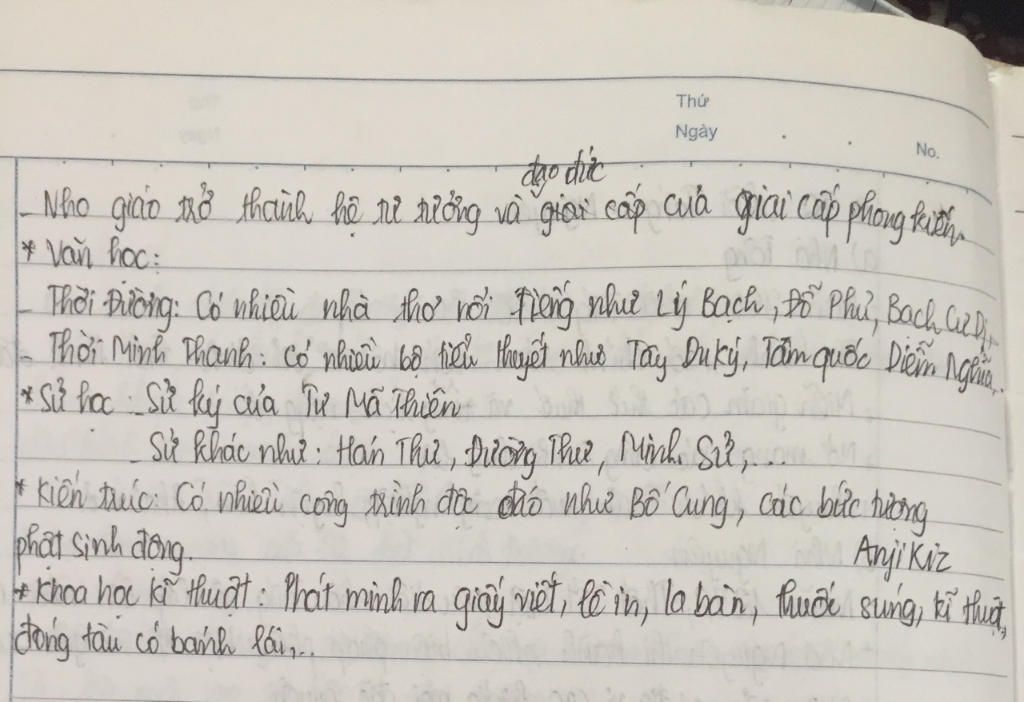 Thứ
Ngày
No.
đạo đức
- Nho giáo trở thành hệ tư tưởng và giai cấp của giai cấp phong kiến.
* Văn học:
- Thời Đường: Có nhiều nhà thơ nổi tiếng như Lý Bạch, Đỗ Phủ, Bạch Cư Dị,..
- Thời Minh Thanh: Có nhiều bộ tiểu thuyết như Tây Du Ký, Tam quốc Diễn Nghĩa,..
* Sử học: - Sử ký của Tư Mã Thiên
- Sử khác như: Hán Thư, Đường Thư, Minh Sử,...
* Kiến trúc: Có nhiều công trình độc đáo như Bố Cung, các bức tượng
phật sinh động.
Anji Kiz
* Khoa học kĩ thuật: Phát minh ra giấy viết, lề in, la bàn, thuốc súng, kĩ thuật,
đóng tàu có bánh lái,..